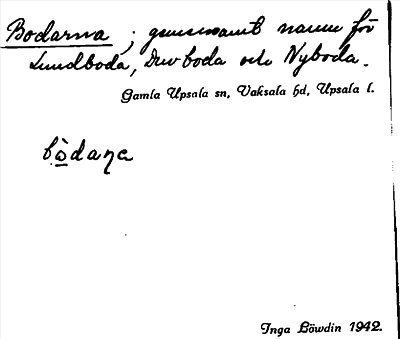 Bodarna ; gemensamt namn för
Lundboda, Duvboda och Nyboda.
Gamla Upsala sn, Vaksala hd, Upsala l.
bo̲̊daŋɐ
Inga Löwdin 1942.